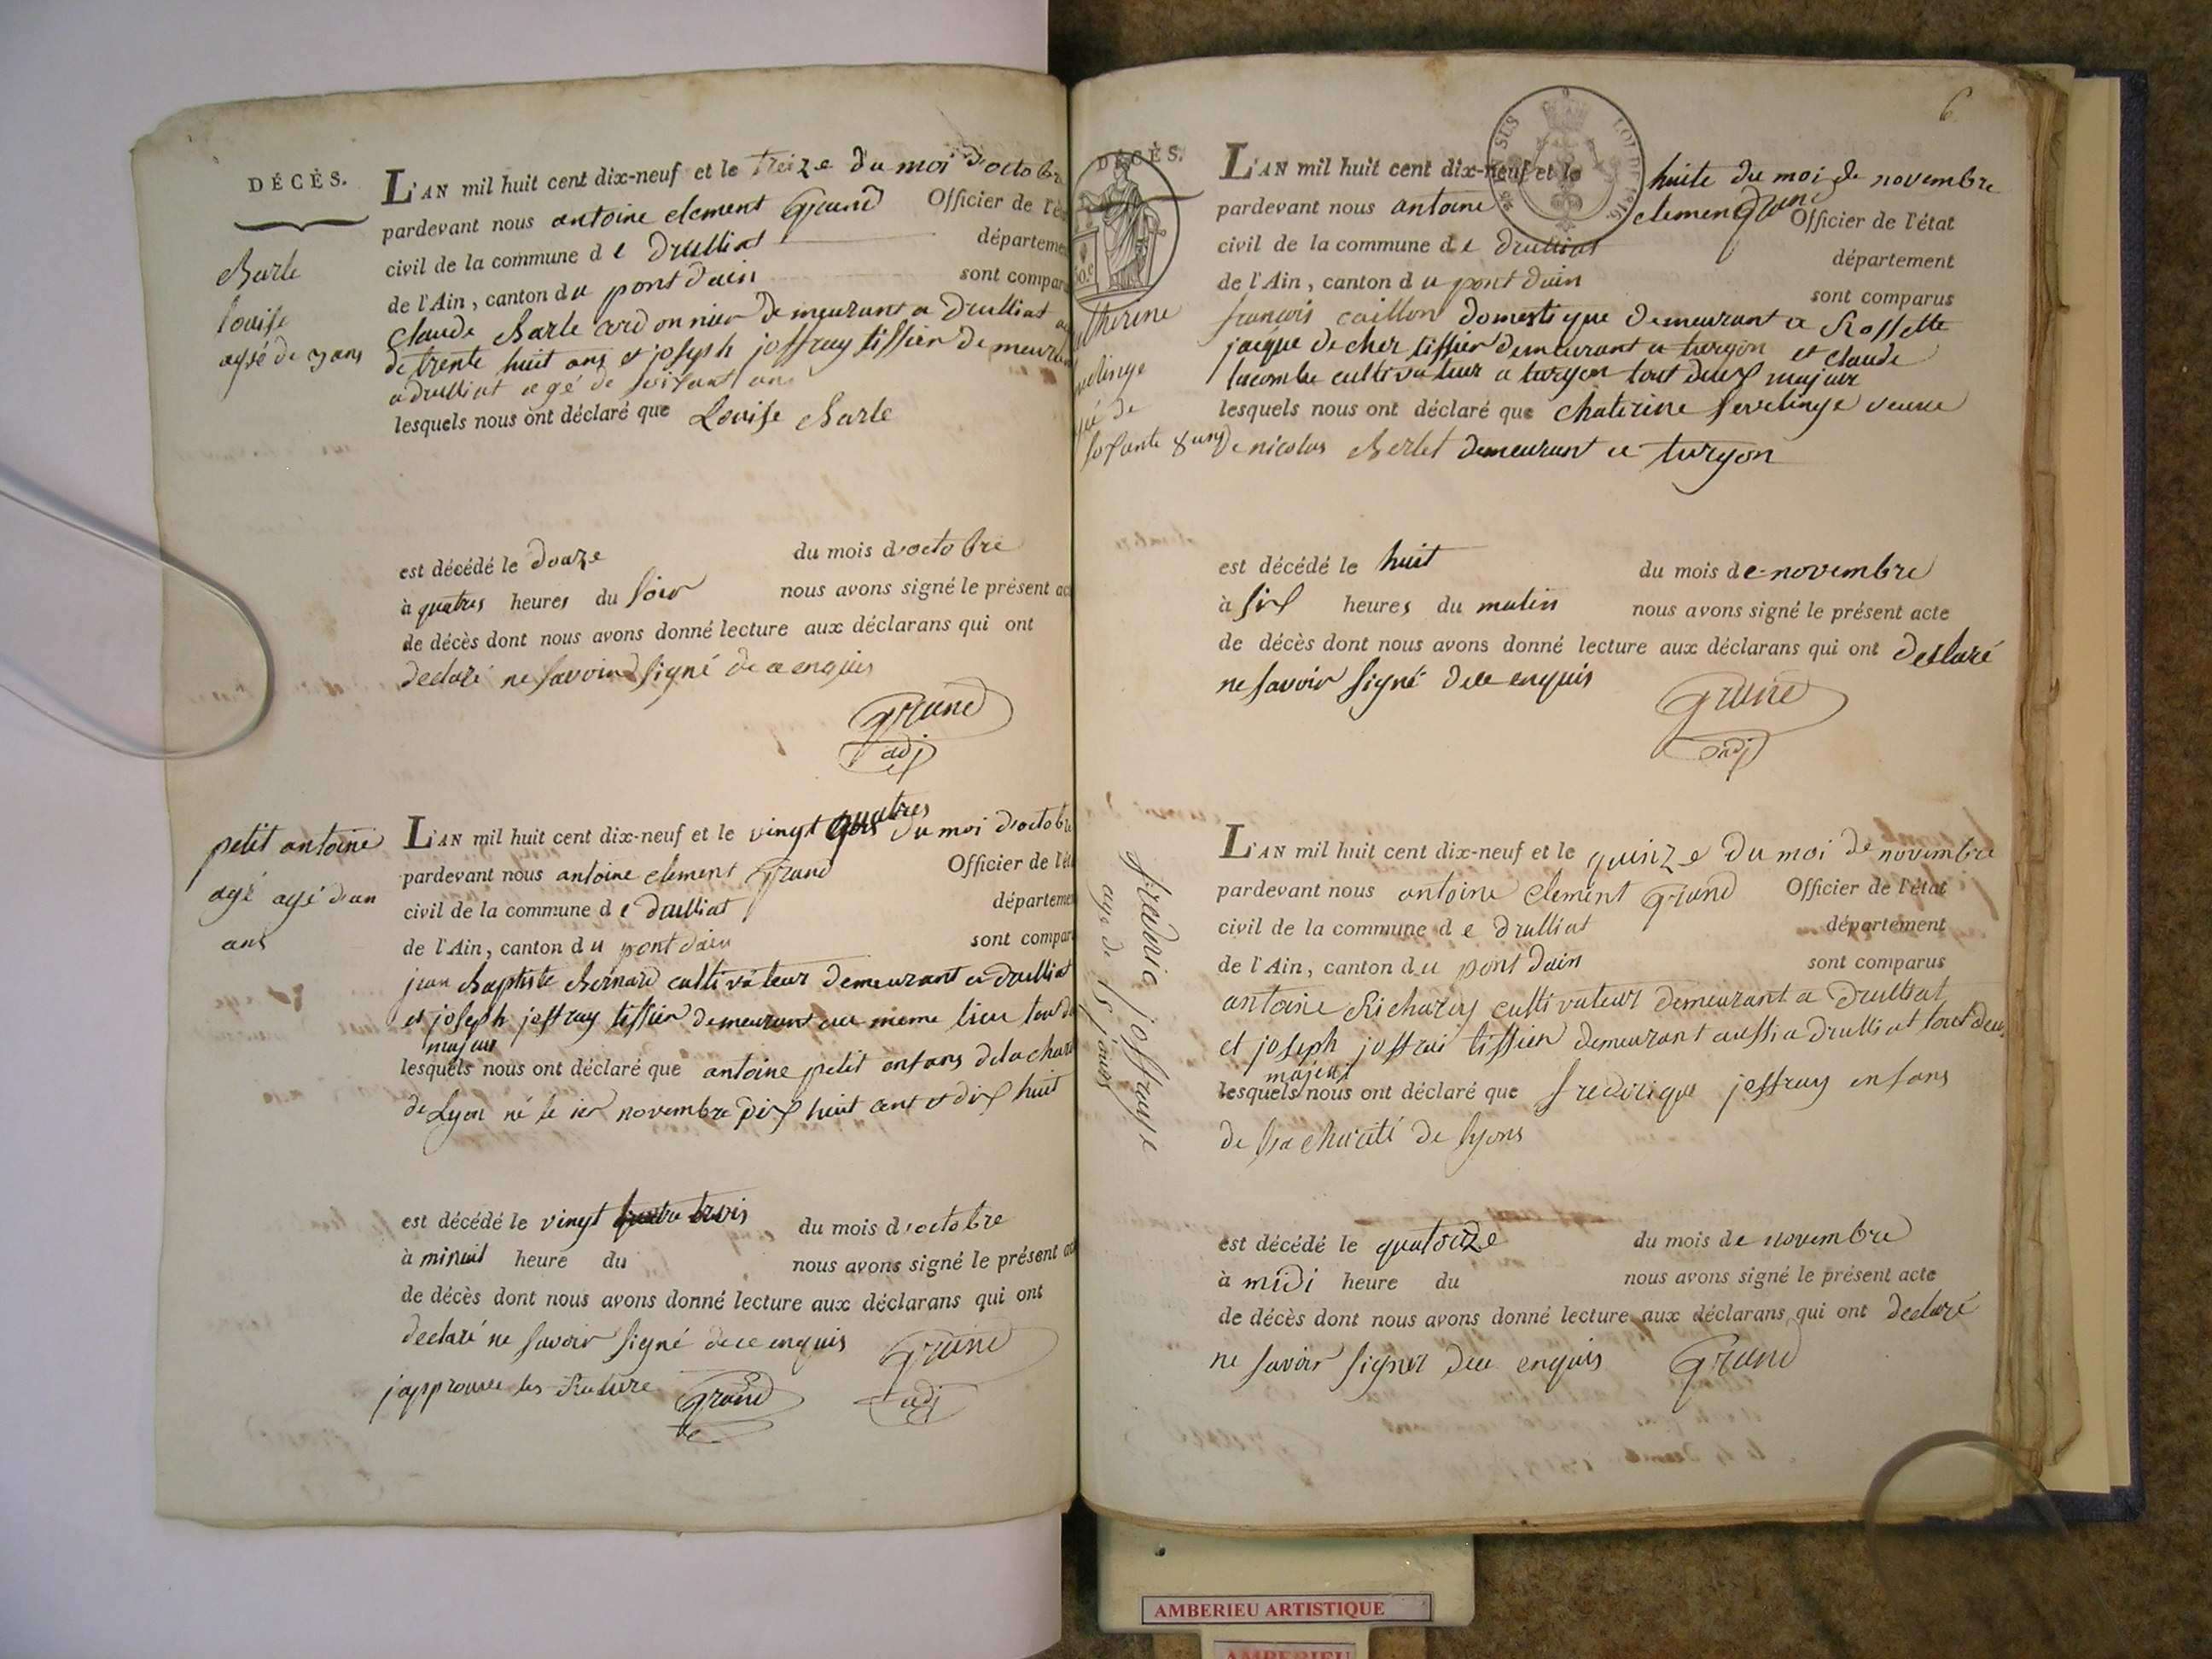 DÉCÈS.
Barle
louise
agsé de 3 ans
L'AN mil huit cent dix-neuf et le treize du moi d'octobre
pardevant nous antoine clement Grand Officier de l'ét
civil de la commune de drulliat départeme
de l'Ain, canton du pont dain sont compar
claude Barle cordonnier demeurant a drulliat
de trente huit ans et joseph joffray tissier demeur
a drulliat agé de soixant ans
lesquels nous ont déclaré que Louise Barle
est décédé le douze du mois d'octobre
à quatres heures du soir nous avons signé le présent ac
de décès dont nous avons donné lecture aux déclarans qui ont
declaré ne savoir signé de ce enquis
Grand
adj
petit antoine
agé agé d'un
ans
L'AN mil huit cent dix-neuf et le vingt quatres du moi d'octobr
pardevant nous antoine clement Grand Officier de l'ét
civil de la commune de drulliat départeme
de l'Ain, canton du pont dain sont compar
jean Baptiste Bernard cultivateur demeurant a drulliat
et joseph joffray tissier demeurant au meme lieu tout d
majeur
lesquels nous ont déclaré que antoine petit enfans de la chari
de Lyon né le ier novembre dix huit cent et dix huit
est décédé le vingt trois du mois d'octobre
à minuit heure du nous avons signé le présent ac
de décès dont nous avons donné lecture aux déclarans qui ont
declaré ne savoir signé de ce enquis Grand
japprouve les Rature Grand adj
6
DÉCÈS.
SUS LOI DE 1816
50.c
therine
velinge
gé de
soxante 8 ans
L'AN mil huit cent dix-neuf et le huite du moi de novembre
pardevant nous antoine clemen Grand Officier de l'état
civil de la commune de drulliat département
de l'Ain, canton du pont dain sont comparus
francois caillon domestique demeurant a Rossette
jacque decher tissier demeurant a turgon et claude
lacombe cultivateur a turgon tout deux majeur
lesquels nous ont déclaré que chaterine servelinge veuve
de nicolas Berlet demeurant a turgon
est décédé le huit du mois de novembre
à six heures du matin nous avons signé le présent acte
de décès dont nous avons donné lecture aux déclarans qui ont declaré
ne savoir signé de ce enquis
Grand
adj
fredric joffraye
age de 15 jours
L'AN mil huit cent dix-neuf et le quinze du moi de novembre
pardevant nous antoine clement Grand Officier de l'état
civil de la commune de drulliat département
de l'Ain, canton du pont dain sont comparus
antoine Richarey cultivateur demeurant a drulliat
et joseph joffrai tissier demeurant aussi a drulliat tout deux
majeur
lesquels nous ont déclaré que frederique joffray enfans
de la charité de lyons
est décédé le quatorze du mois de novembre
à midi heure du nous avons signé le présent acte
de décès dont nous avons donné lecture aux déclarans qui ont declaré
ne savoir signer de ce enquis Grand
AMBERIEU ARTISTIQUE
AMBERIEU